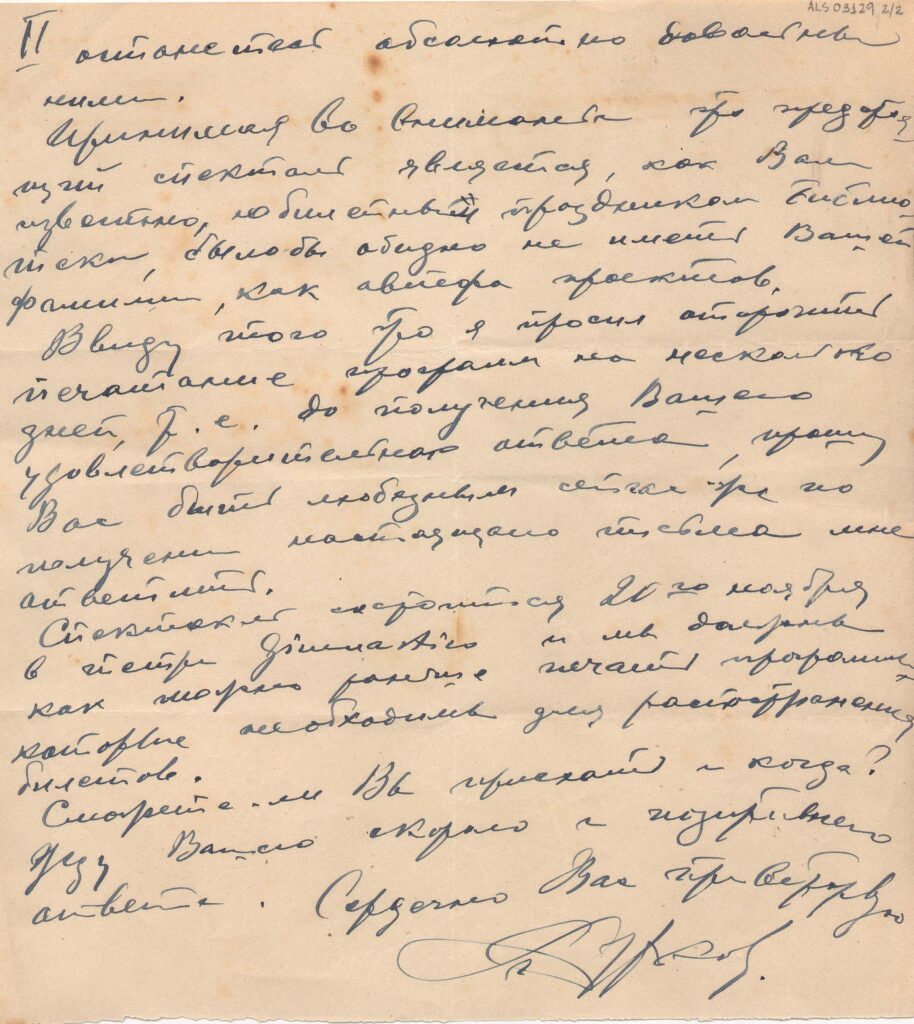 ALS 03129 2/2
II останетесь абсолютно довольны
ними.
Принимая во внимание что предстоя
щий спектакль является, как Вам
известно, юбилейным праздником Библио
теки, было бы обидно не иметь Вашей
фамилии, как автора проектов.
Ввиду того что я просил отсрочить
печатание программ на несколько
дней, т. е. до получения Вашего
удовлетворительного ответа, прошу
Вас быть любезным сейчас же по
получении настоящего письма мне
ответить.
Спектакль состоится 20го ноября
в театре Gimnastico и мы должны
как можно раньше печатать программы
которые необходимы для распространения
билетов.
Сможете-ли Вы приехать и когда?
Жду Вашего скорого и позитивного
ответа. Сердечно Вас приветствую